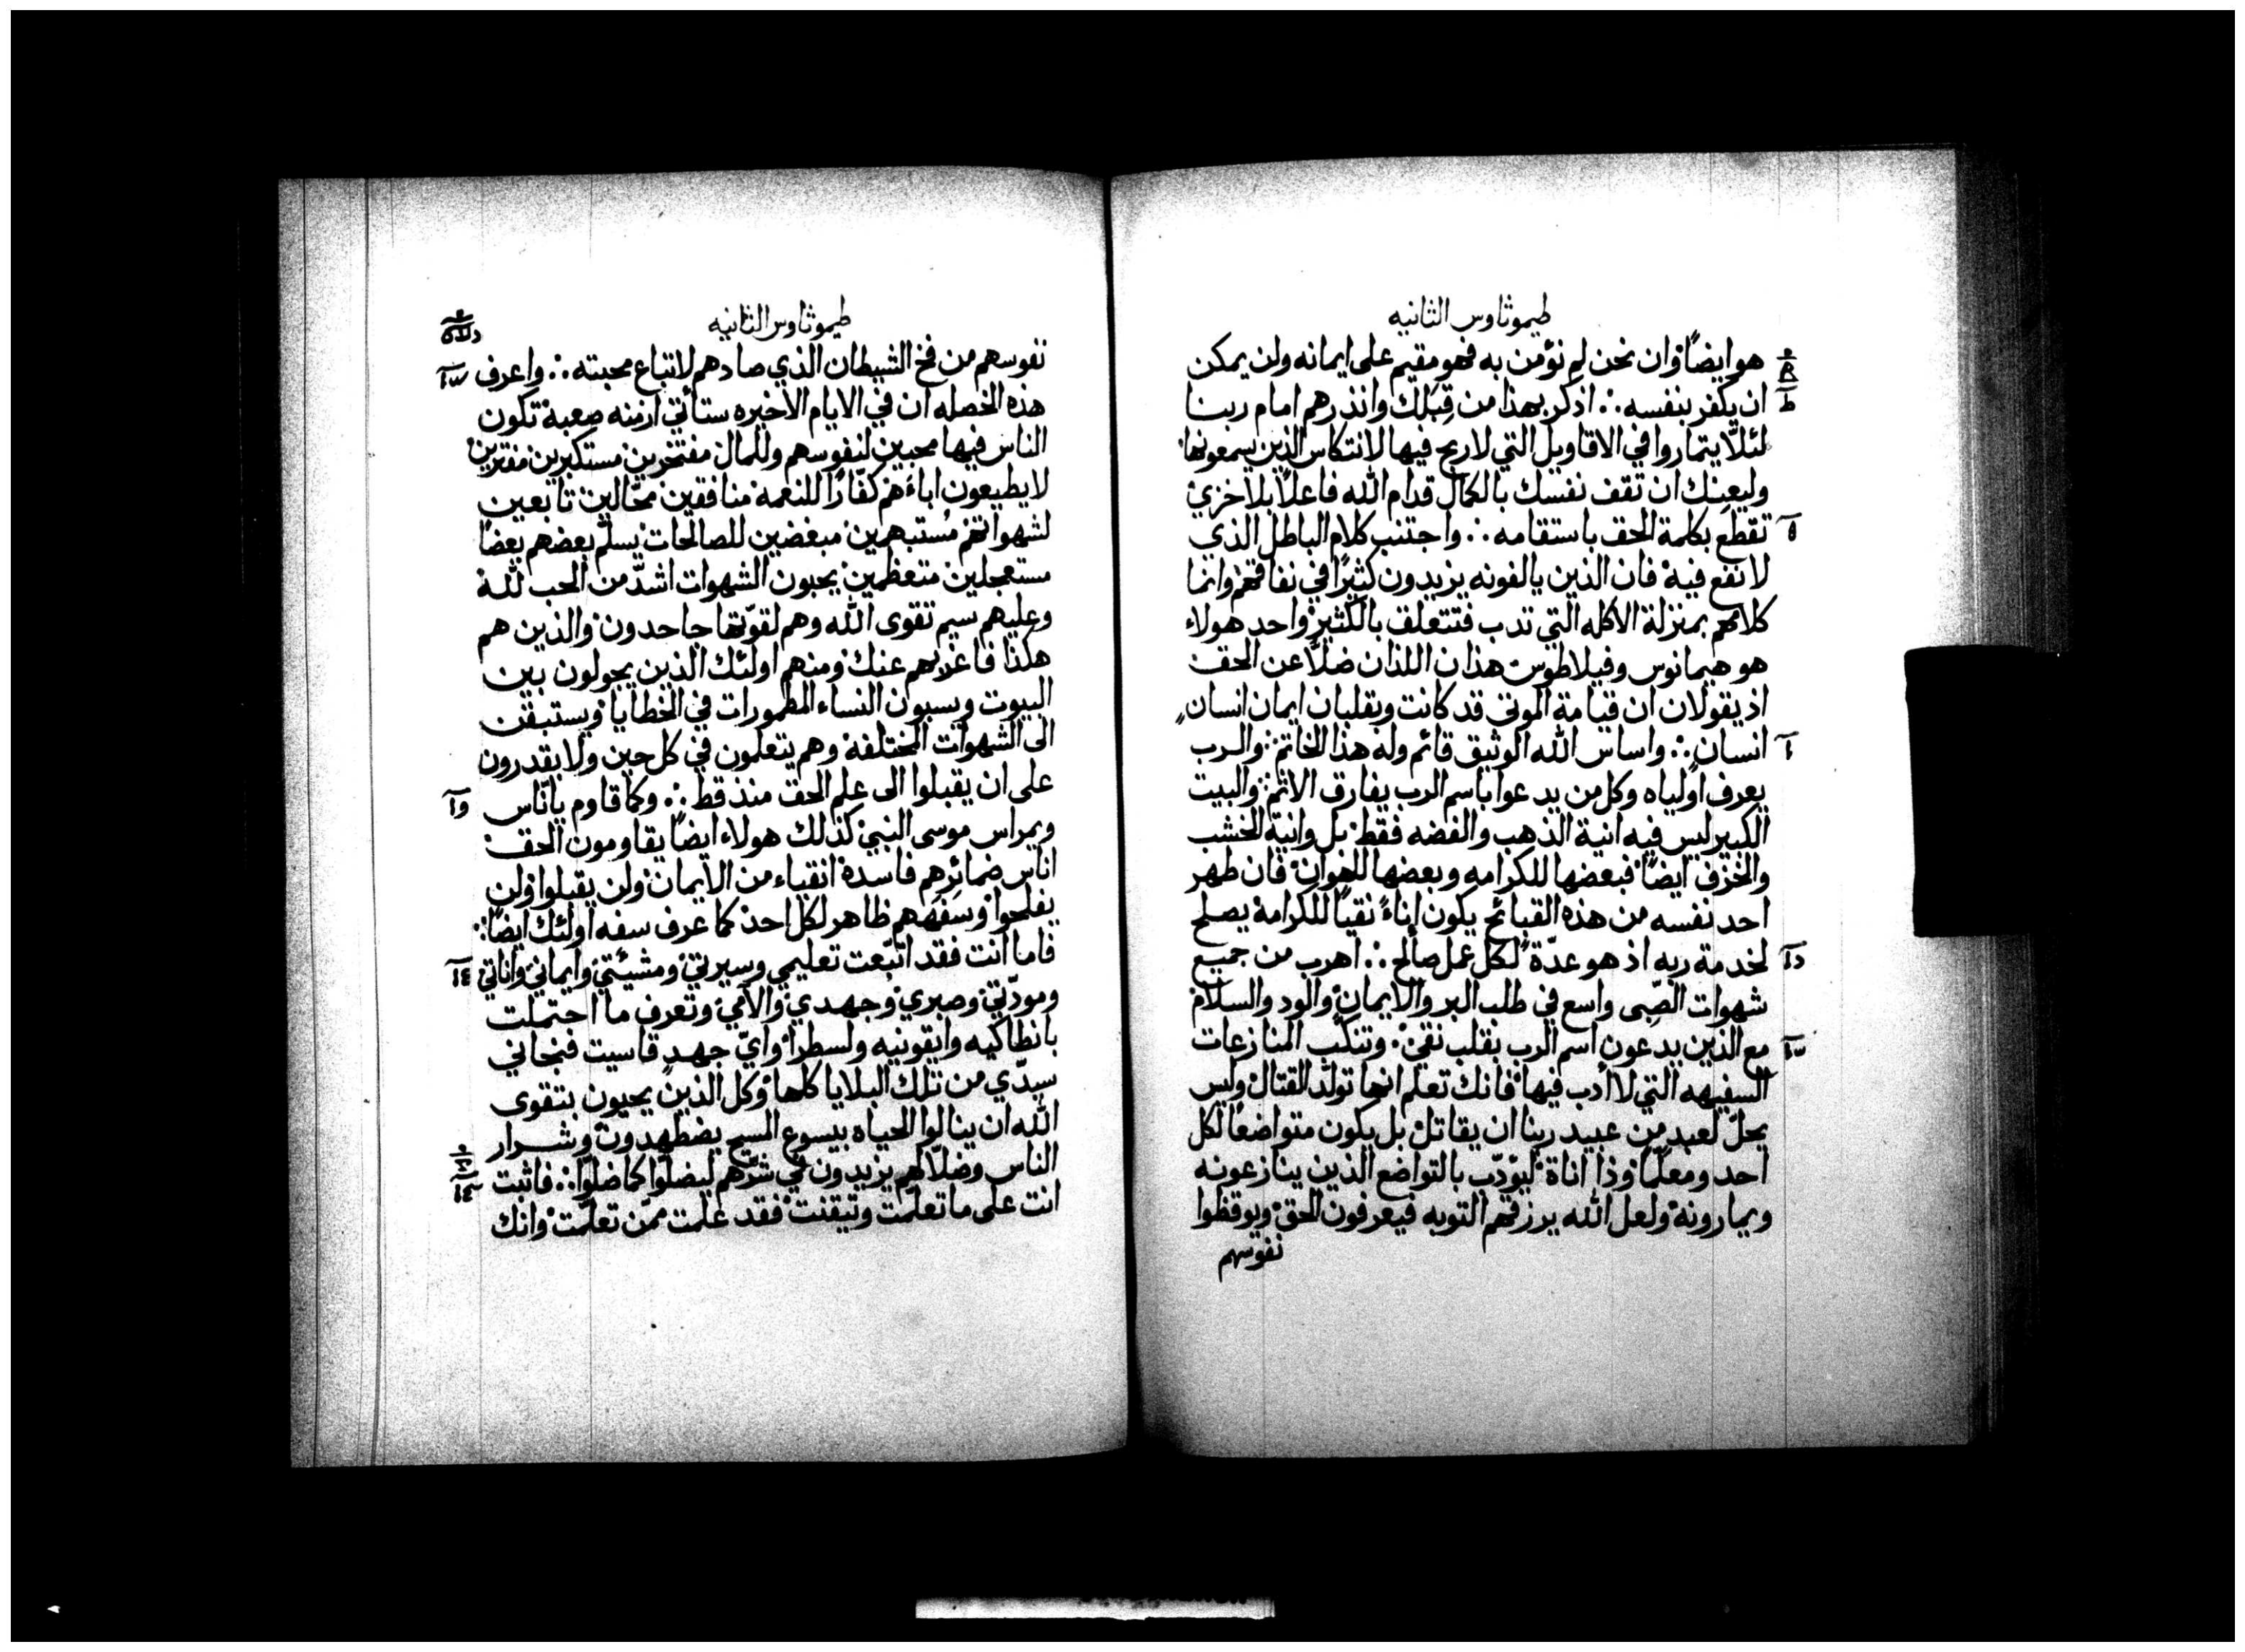 طيموثاوس الثانيه
هو ايضًا وان نحن لم نؤمن به فهو مقيم على ايمانه ولن يمكن
ان يكفر بنفسه ∴ اذكر بهذا من قِبَلك وانذرهم امام ربنا
لئلّا يتماروا في الاقاويل التي لا ربح فيها لانتكاس الذين يسمعونها
وليعينك ان تقف نفسك بالكمال قدام الله فاعلًا بلا خزي
تقطع بكلمة الحق باستقامه ∴ واجتنب كلام الباطل الذي
لا نفع فيه فان الذين يالفونه يزيدون كثيرًا في نفاقهم وانما
كلامهم بمنزلة الاكله التي تدب فتتعلق بالكثير وواحد هولاء
هو هيمانوس وفيلاطوس هذان اللذان ضلّا عن الحق
اذ يقولان ان قيامة الموتى قد كانت ويقلبان ايمان انسان
انسان ∴ واساس الله الوثيق قائم وله هذا الخاتم والرب
يعرف اولياه وكل من يدعوا باسم الرب يفارق الاثم والبيت
الكبير ليس فيه انية الذهب والفضه فقط بل وانية الخشب
والخزف ايضًا فبعضها للكرامه وبعضها للهوان فان طهر
احد نفسه من هذه القبائح يكون اناءً نقيًا للكرامة يصلح
لخدمة ربه اذ هو عدّة لكل عمل صالح ∴ اهرب من جميع
شهوات الصبى واسع في طلب البر والايمان والود والسلام
مع الذين يدعون اسم الرب بقلب نقي وتنكّب المنازعات
السفيهه التي لا ادب فيها فانك تعلم انها تولّد القتال وليس
يحلّ لعبد من عبيد ربنا ان يقاتل بل يكون متواضعًا لكل
احد ومعلّمًا وذا اناة ليؤدّب بالتواضع الذين ينازعونه
ويمارونه ولعل الله يرزقهم التوبه فيعرفون الحق ويوقظوا
نفوسهم
طيموثاوس الثانيه
نفوسهم من فخ الشيطان الذي صادهم لاتباع محبته ∴ واعرف
هذه الخصله ان في الايام الاخيره ستأتي ازمنه صعبة تكون
الناس فيها محبين لنفوسهم وللمال مفتخرين مستكبرين مفترين
لا يطيعون اباءهم كفّارًا للنعمة منافقين محّالين تابعين
لشهواتهم مستبهمين مبغضين للصالحات يسلّم بعضهم بعضًا
مستعجلين متعظمين يحبون الشهوات اشدّ من الحب لله
وعليهم سيم تقوى الله وهم لقوّتها جاحدون والذين هم
هكذا فاعزلهم عنك ومنهم اولئك الذين يجولون بين
البيوت ويسبون النساء المطمورات في الخطايا ويستبقن
الى الشهوات المختلفة وهم يتعلمون في كل حين ولا يقدرون
على ان يقبلوا الى علم الحق منذ قط ∴ وكما قاوم ياناس
ويمراس موسى النبي كذلك هولاء ايضًا يقاومون الحق
اناس ضمائرهم فاسدة انقياء من الايمان ولن يقبلوا ولن
يفلحوا وسفههم ظاهر لكل احد كما عرف سفه اولئك ايضًا
فاما انت فقد اتّبعت تعليمي وسيرتي ومشيّتي وايماني واناتي
ومودّتي وصبري وجهدي والامي وتعرف ما احتملت
بانطاكيه وايقونيه ولسطرا وايّ جهدٍ قاسيت فنجاني
سيدّي من تلك البلايا كلها وكل الذين يحبون بتقوى
الله ان ينالوا الحياه بيسوع المسيح يضطهدون وشرار
الناس وضلّالهم يزيدون في شرّهم ليضلّوا كما ضلّوا ∴ فاثبت
انت على ما تعلّمت وتيقنت فقد علمت ممّن تعلّمت وانك